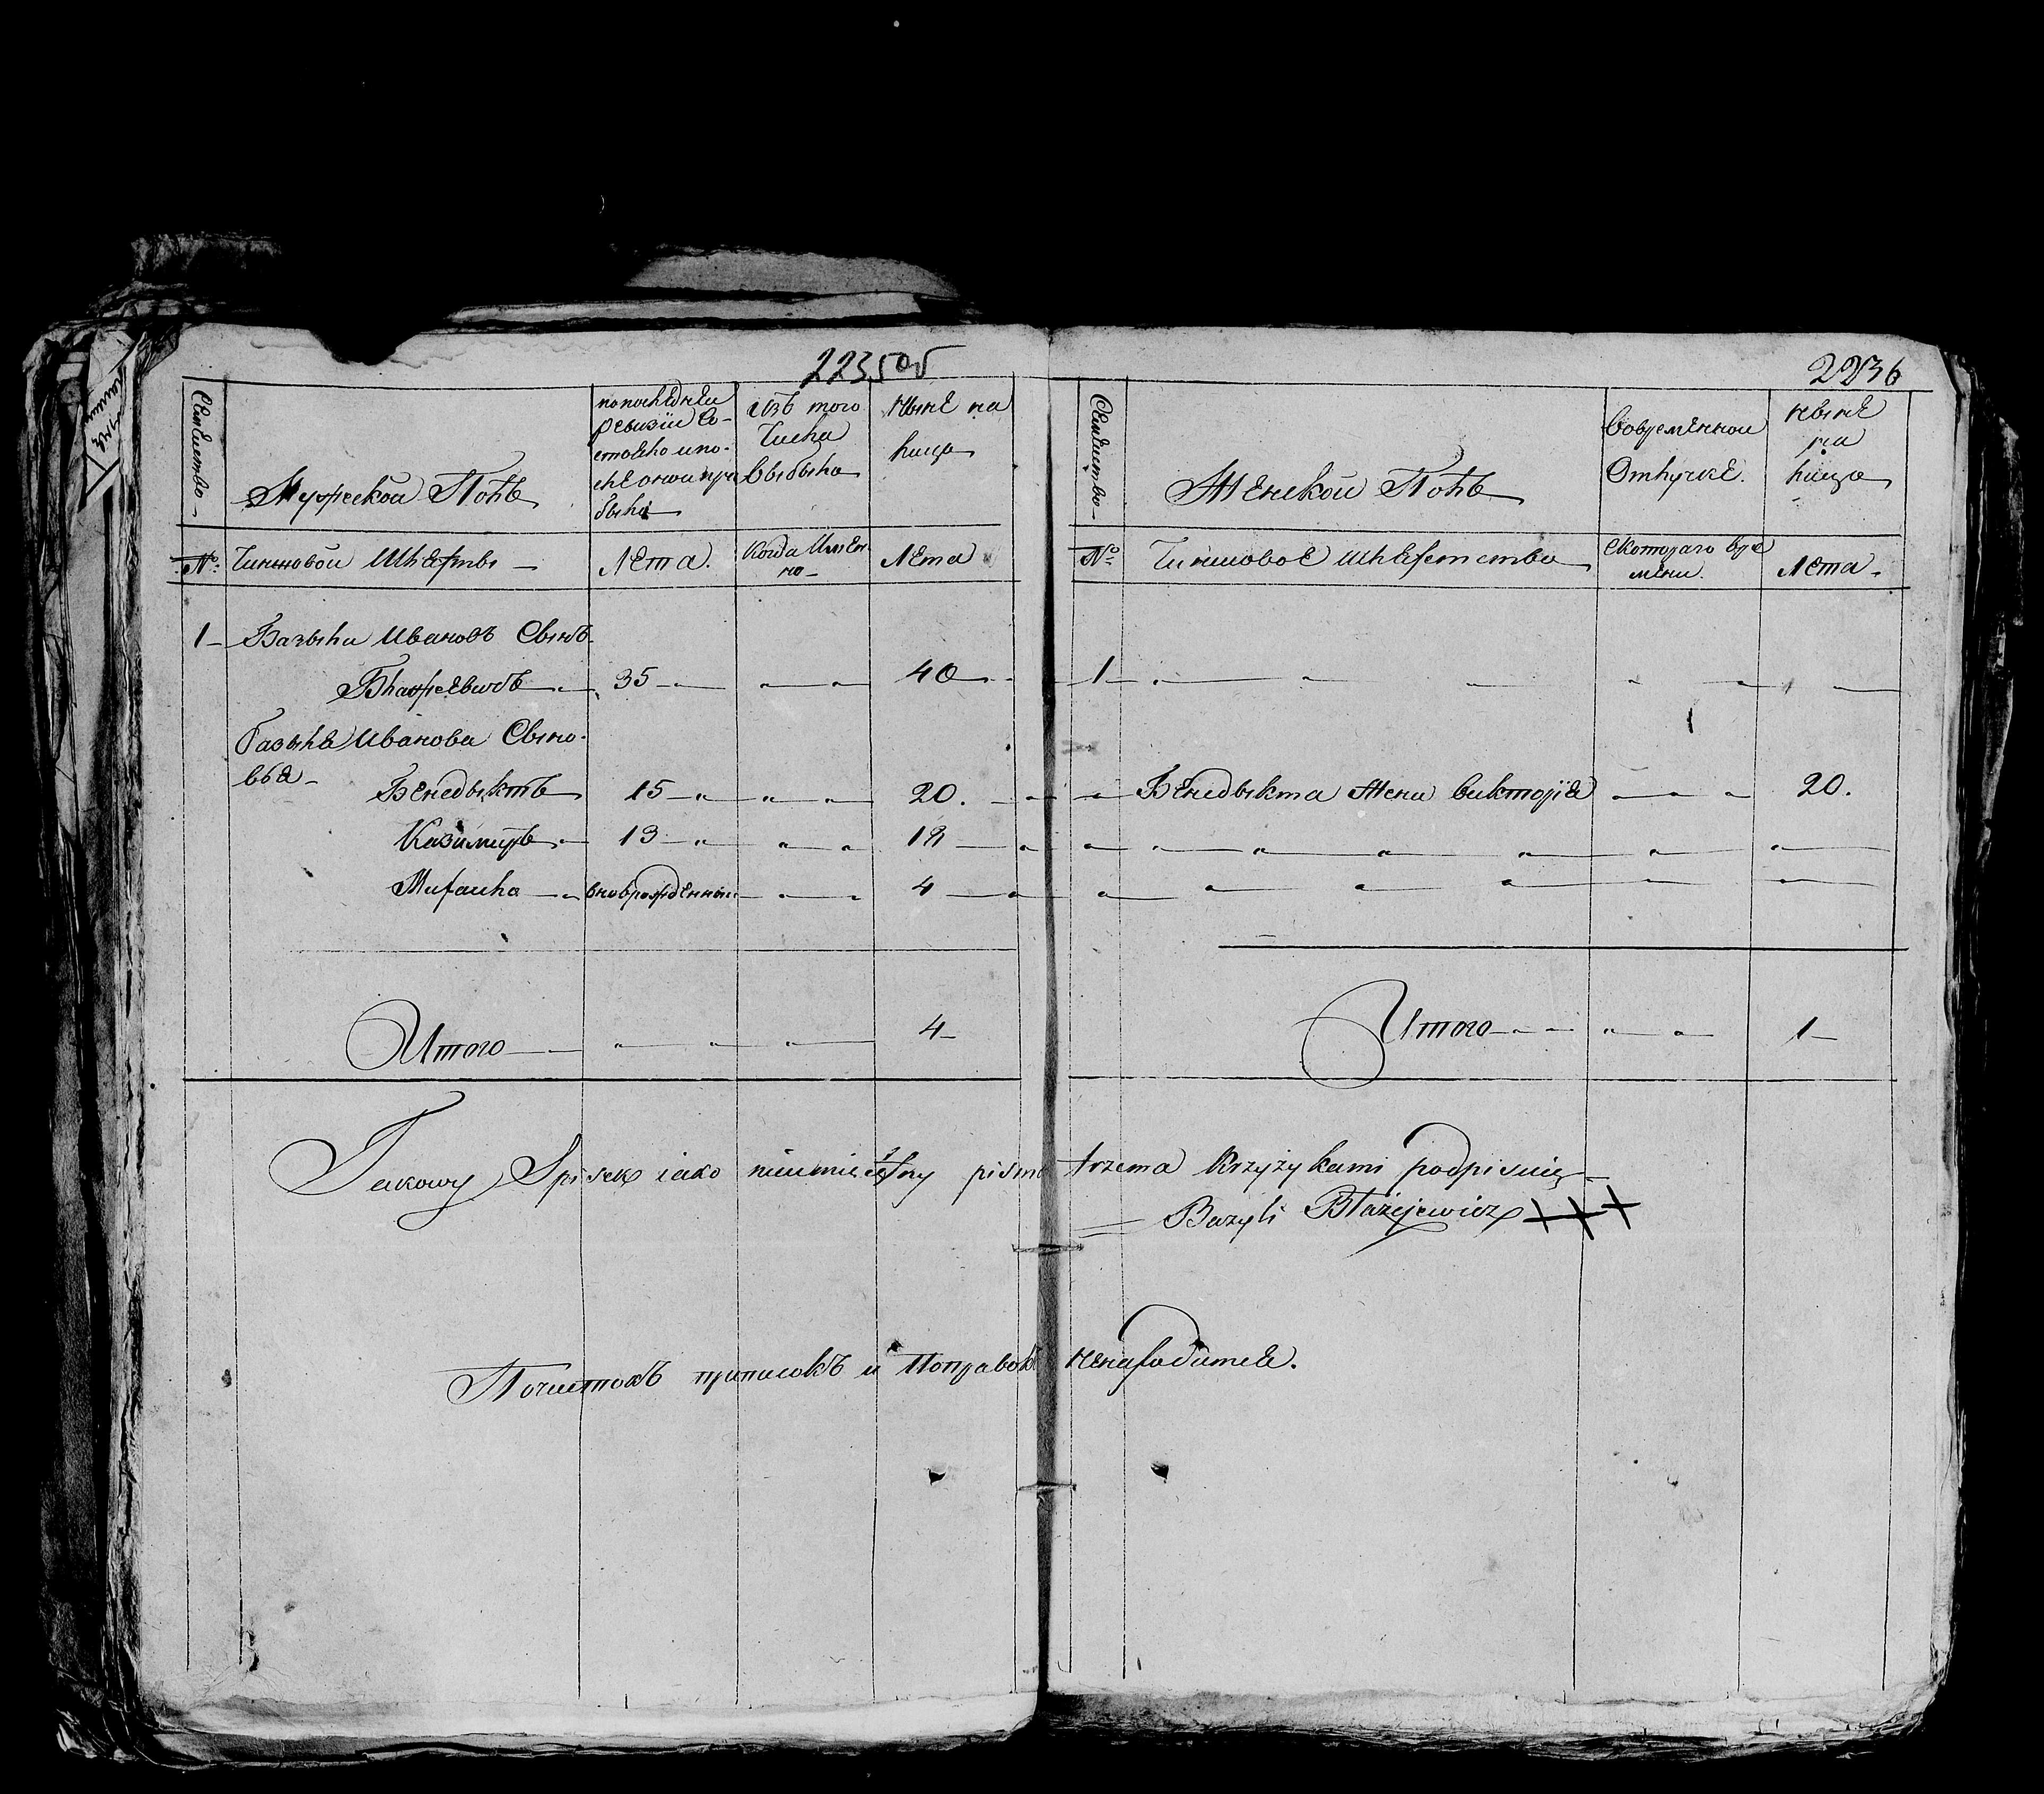 223 об
Семейство
Мужеской Полъ
по последней
ревизіи со-
стояло и по-
сле оной при
было
изъ того
Числа
Выбыло
Ныне на
лицо
№:
Чиншовой Шляхты
Лета.
Когда Имен
но
Лета
1 Базыли Ивановъ Сынъ
Блажеевичъ 35 40
Базыля Иванова Сыно-
вья
Бенедыктъ 15 20.
Казимиръ 13 18
Михайла вноврожденный 4
Итого 4
2236
Семейство
Женской Полъ
Вовременной
Отлучке.
Ныне
на
лицо
№
Чиншовое шляхетство
с котораго вре
мени.
Лета.
1
Бенедыкта Жена Викторія 20.
Итого 1
Takowy Spisek iako nieumieiętny pisma trzema krzyżykami podpisuię
Bazyli Błażejewicz +++
Почистокъ приписокъ и Поправокъ ненаходится.